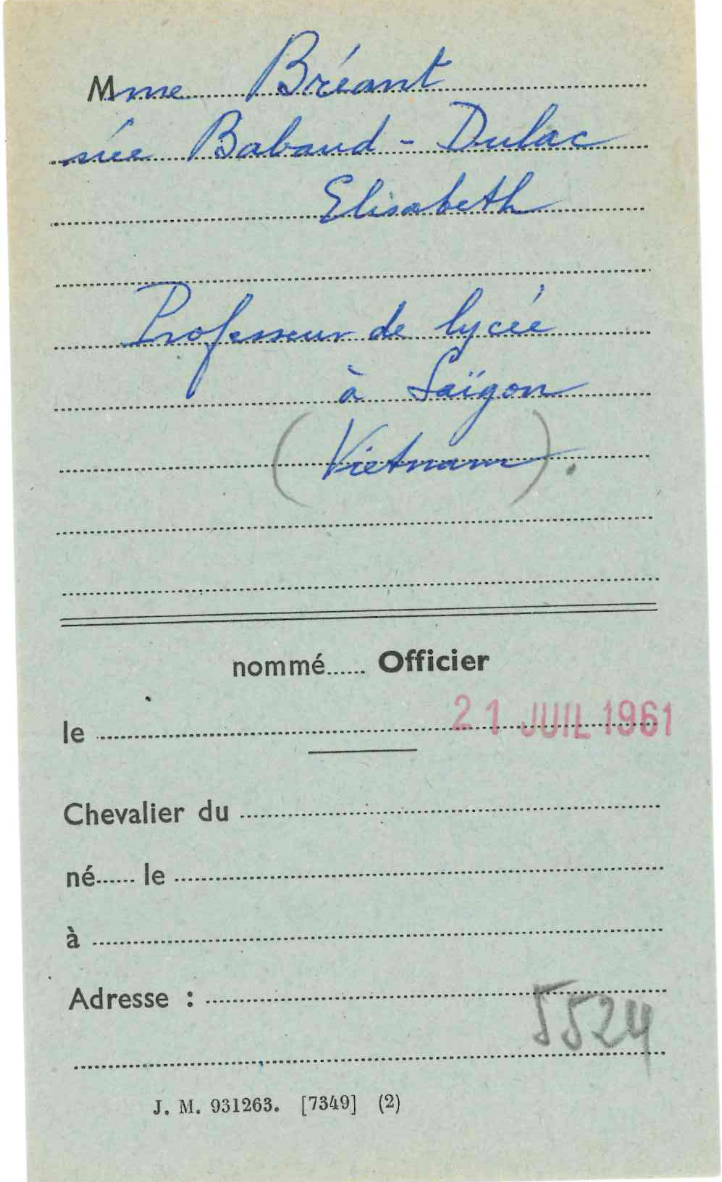 Mme Bréant
née Babaud-Dulac
Elisabeth
Professeur de lycée
à Saïgon
(Vietnam).
nommé...... Officier
le 21 JUIL 1961
Chevalier du
né...... le
à
Adresse :
5524
J. M. 931263. [7349] (2)